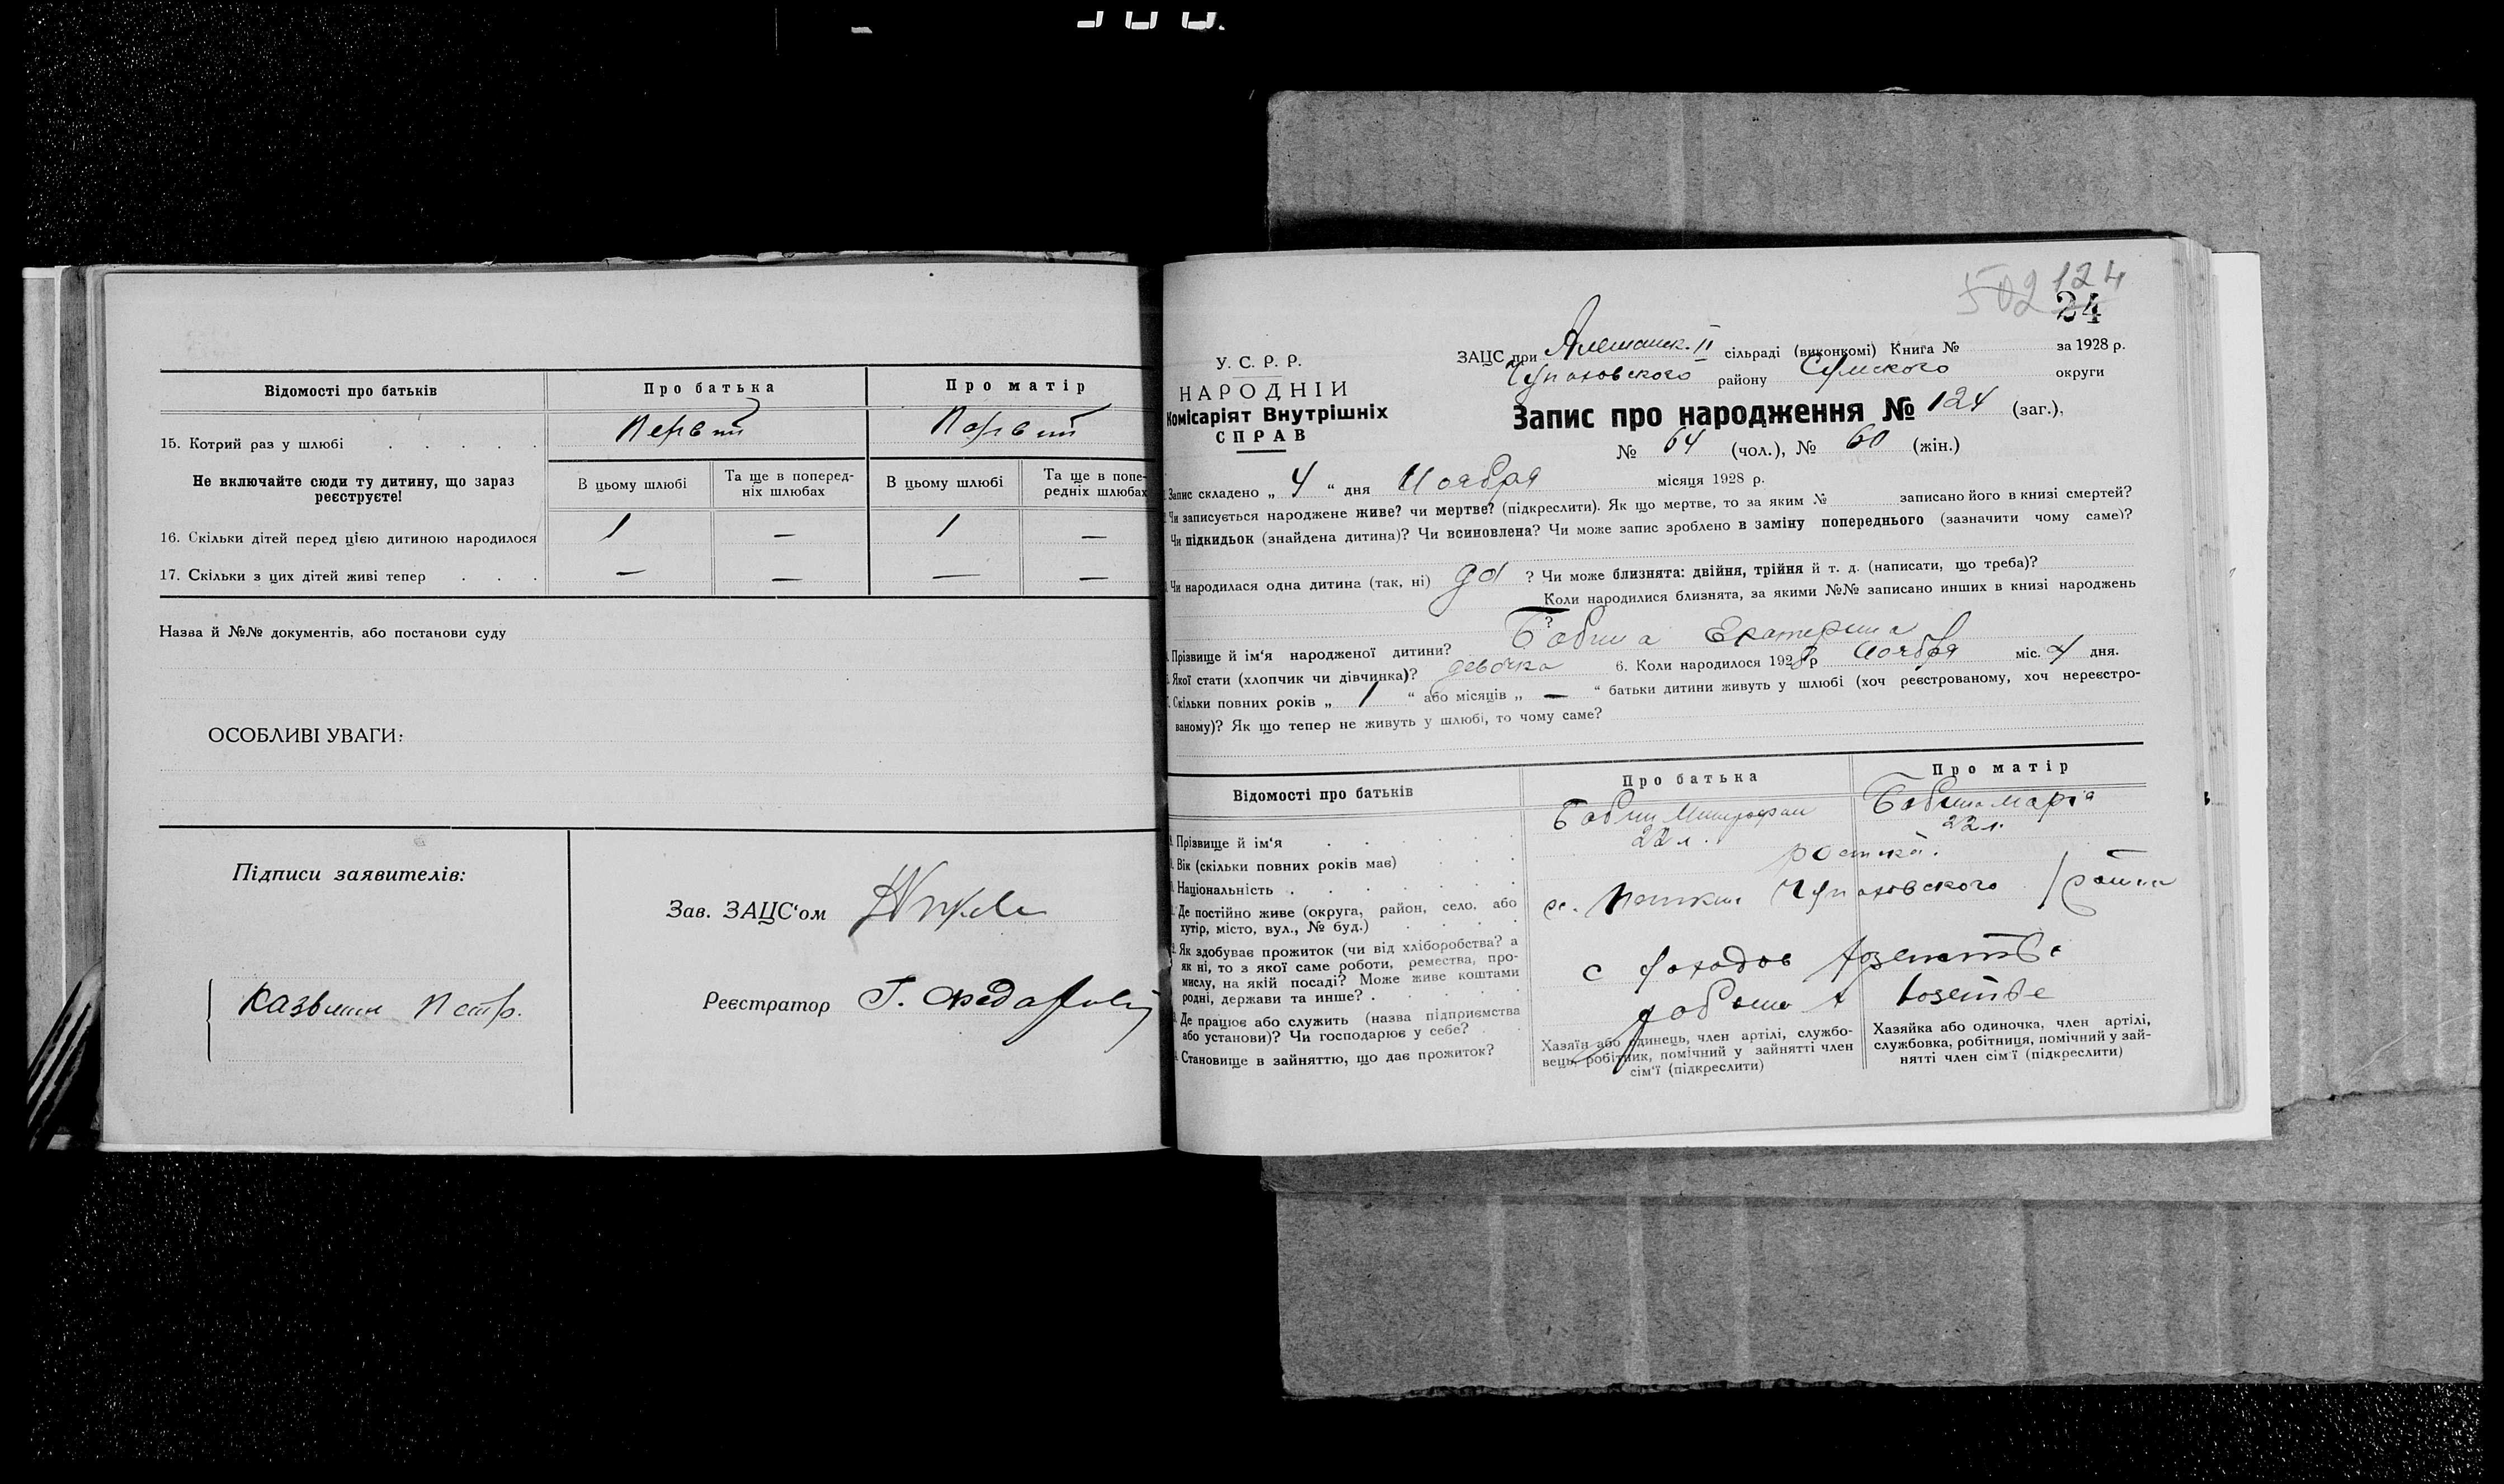 Відомості про батьків
Про батька
Про матір
15. Котрий раз у шлюбі
Первый
Первый
Не включайте сюди ту дитину, що зараз
реєструєте!
В цьому шлюбі
Та ще в поперед-
ніх шлюбах
В цьому шлюбі
Та ще в попе-
редніх шлюбах
16. Скільки дітей перед цією дитиною народилося
1 — 1 —
17. Скільки з цих дітей живі тепер
— — — —
Назва й №№ документів, або постанови суду
ОСОБЛИВІ УВАГИ:
Підписи заявителів:
Петр.
Зав. ЗАЦС'ом
Реєстратор Г.
502 124
24
У. С. Р. Р.
НАРОДНІЙ
Комісаріят Внутрішніх
СПРАВ
ЗАЦС при Алешанск. II сільраді (виконкомі) Книга № за 1928 р.
Чупаховского району Сумского округи
Запис про народження № 124 (заг.),
№ 64 (чол.), № 60 (жін.)
Запис складено „ 4 “ дня Ноября місяця 1928 р.
Чи записується народжене живе? чи мертве? (підкреслити). Як що мертве, то за яким № записано його в книзі смертей?
Чи підкидьок (знайдена дитина)? Чи всиновлена? Чи може запис зроблено в заміну попереднього (зазначити чому саме)?
Чи народилася одна дитина (так, ні) да ? Чи може близнята: двійня, трійня й т. д. (написати, що треба)?
Коли народилися близнята, за якими №№ записано инших в книзі народжень
?
Прізвище й ім'я народженої дитини? Бабина Екатерина
Якої стати (хлопчик чи дівчинка)? девочка 6. Коли народилося 1928 р Ноября міс. 4 дня.
Скільки повних років „ 1 “ або місяців „ — “ батьки дитини живуть у шлюбі (хоч реєстрованому, хоч нереєстро-
ваному)? Як що тепер не живуть у шлюбі, то чому саме?
Відомості про батьків
Про батька
Про матір
Прізвище й ім'я
Бабин Митрофан
Бабина Марія
Вік (скільки повних років має)
22 л.
22 л.
Національність
Де постійно живе (округа, район, село, або
хутір, місто, вул., № буд.)
с. Чупаховского района
Як здобуває прожиток (чи від хліборобства? а
як ні, то з якої саме роботи, ремества, про-
мислу, на якій посаді? Може живе коштами
родні, держави та инше?
с
Де працює або служить (назва підприємства
або установи)? Чи господарює у себе?
Становище в зайняттю, що дає прожиток?
Хазяїн або одинець, член артілі, службо-
вець, робітник, помічний у зайнятті член
сім'ї (підкреслити)
Хазяйка або одиночка, член артілі,
службовка, робітниця, помічний у зай-
нятті член сім'ї (підкреслити)